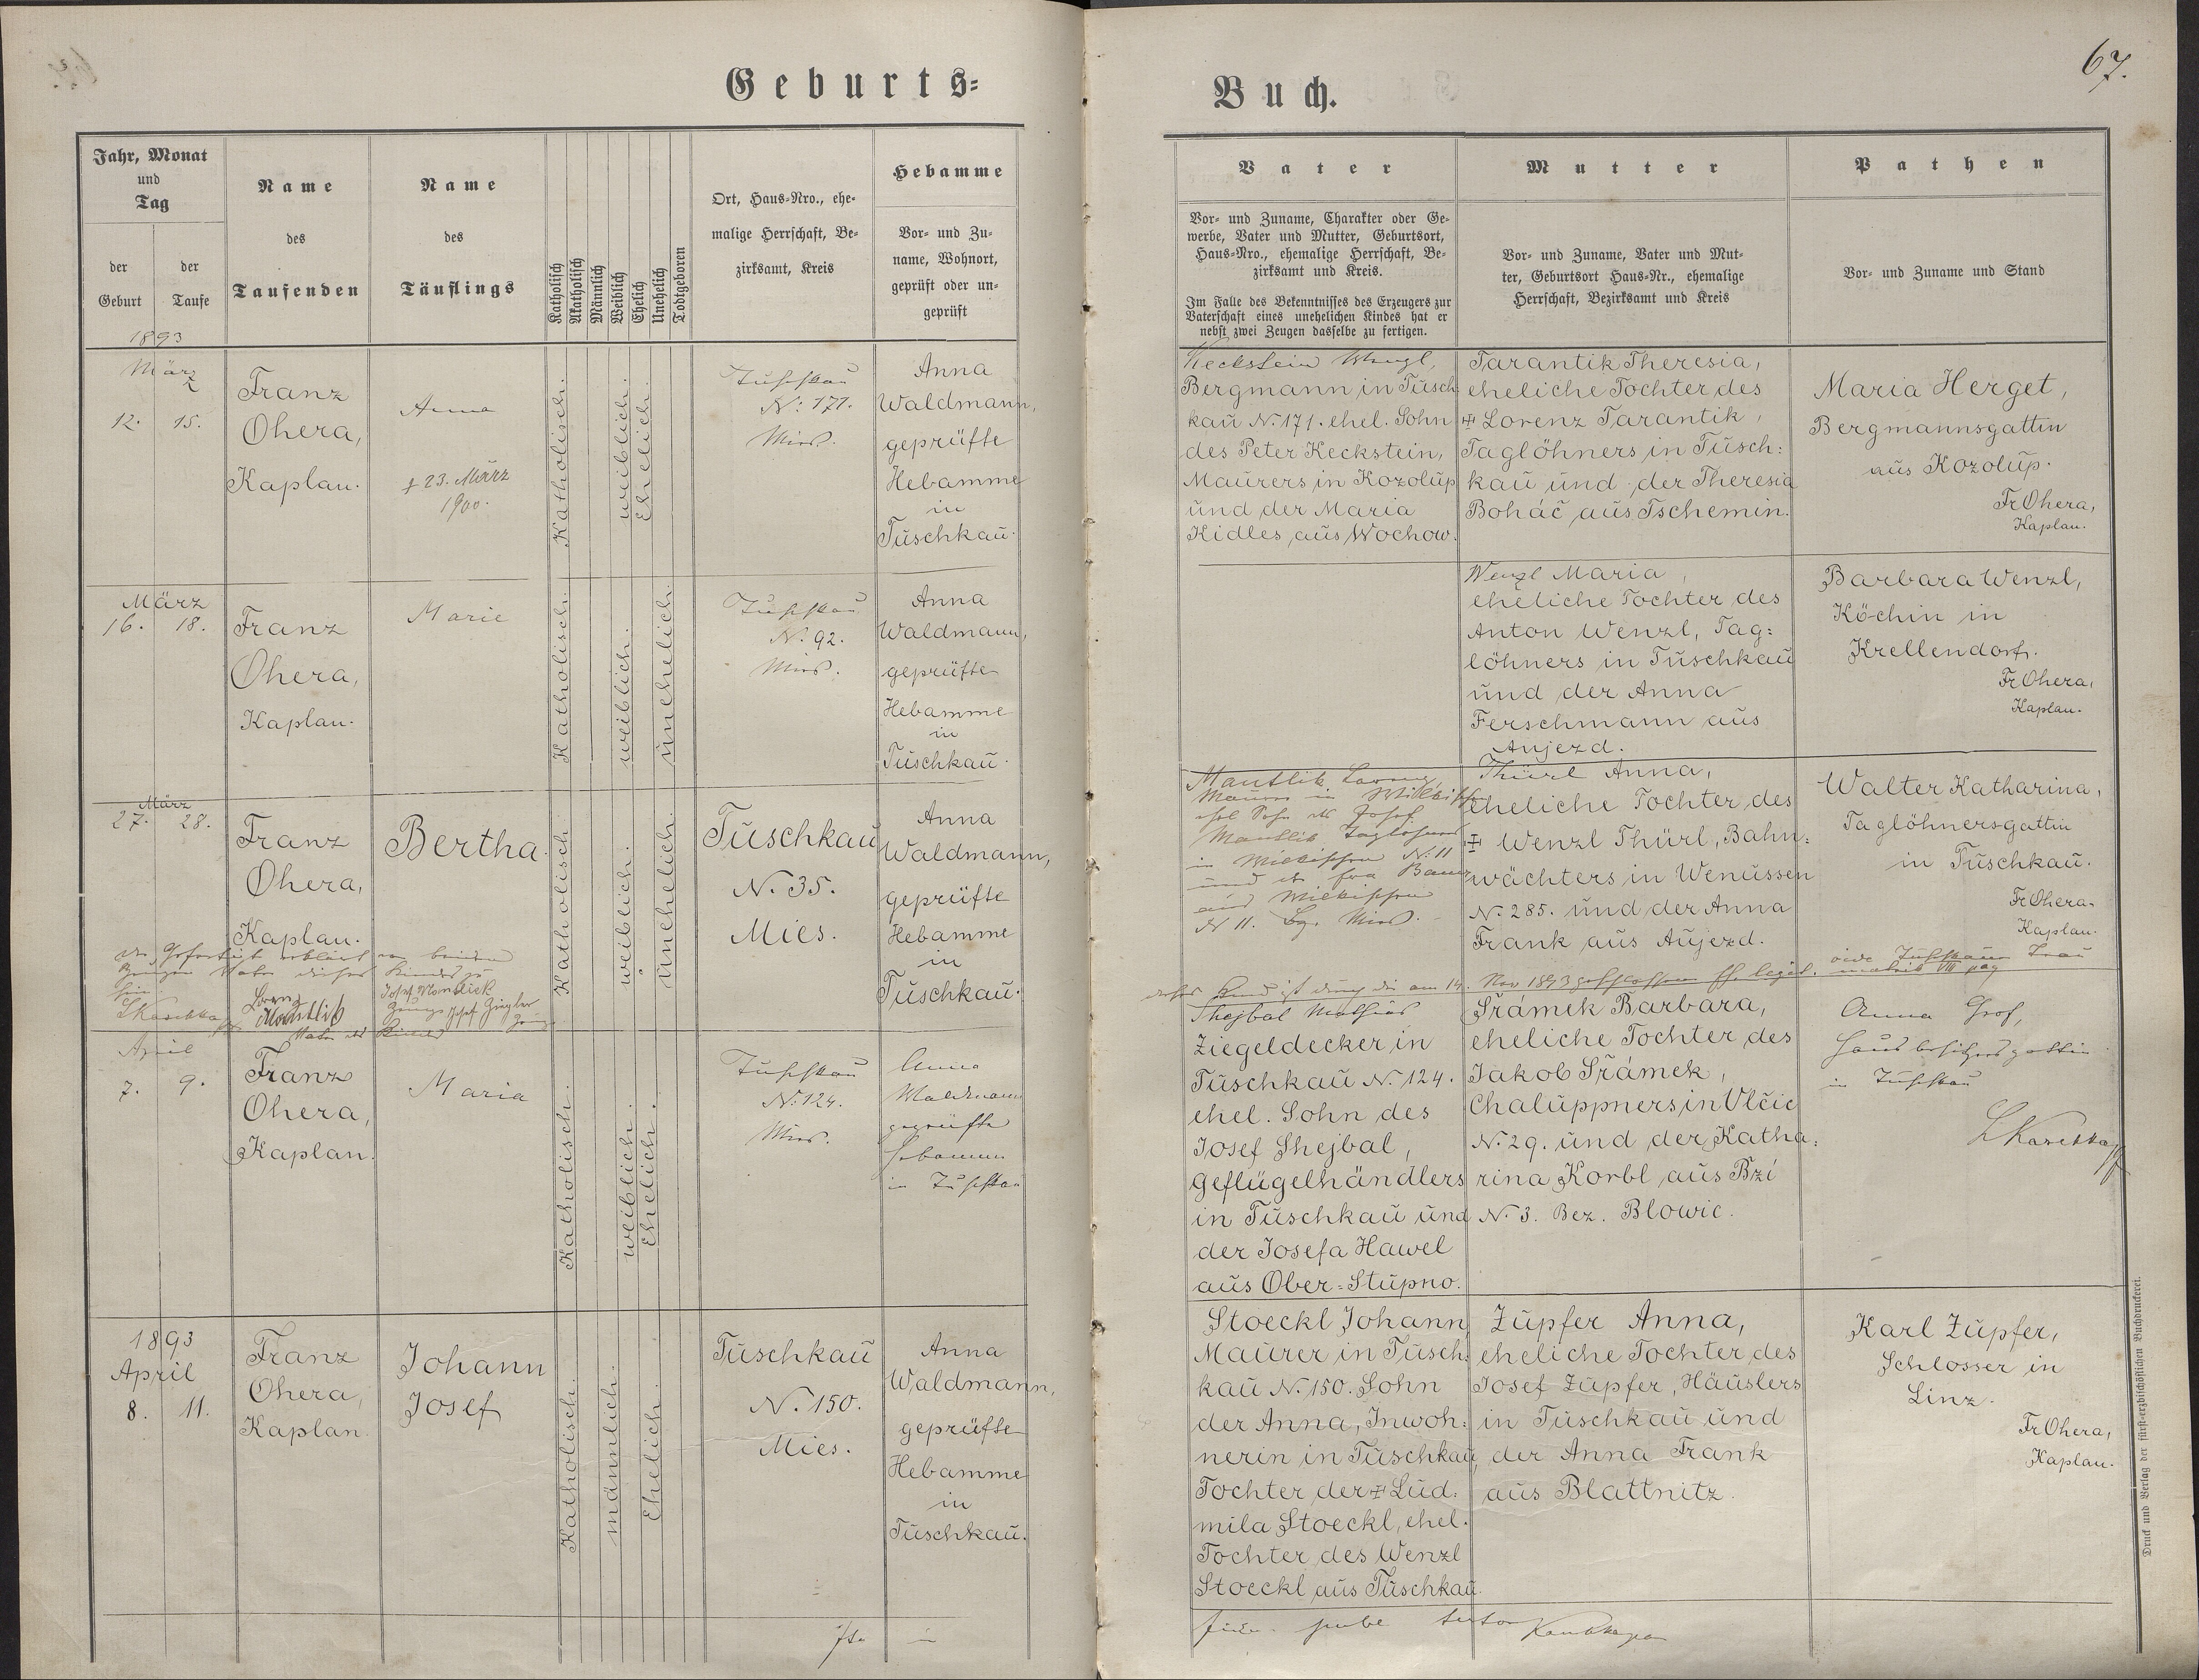 Geburts=
Buch.
67.
Jahr, Monat
und
Tag
der
Geburt
der
Taufe
Name
des
Taufenden
Name
des
Täuflings
Katholisch
Akatholisch
Männlich
Weiblich
Ehelich
Unehelich
Todtgeboren
Ort, Haus=Nro., ehe=
malige Herrschaft, Be=
zirksamt, Kreis
Hebamme
Vor= und Zu=
name, Wohnort,
geprüft oder un=
geprüft
Vater
Vor= und Zuname, Charakter oder Ge=
werbe, Vater und Mutter, Geburtsort,
Haus=Nro., ehemalige Herrschaft, Be=
zirksamt und Kreis.
Im Falle des Bekenntnisses des Erzeugers zur
Vaterschaft eines unehelichen Kindes hat er
nebst zwei Zeugen dasselbe zu fertigen.
Mutter
Vor= und Zuname, Vater und Mut=
ter, Geburtsort Haus=Nr., ehemalige
Herrschaft, Bezirksamt und Kreis
Pathen
Vor= und Zuname und Stand
1893
März
12. 15.
Franz
Ohera,
Kaplan.
Anna
† 23. März
1900.
Katholisch.
weiblich.
Ehelich.
Tuschkau
N: 171.
Mies.
Anna
Waldmann,
geprüfte
Hebamme
in
Tuschkau.
Keckstein Wenzl,
Bergmann in Tusch
kau N. 171. ehel. Sohn
des Peter Keckstein,
Maurers in Kozolup
und der Maria
Kidles, aus Wochow.
Tarantik Theresia,
eheliche Tochter des
‡ Lorenz Tarantik,
Taglöhners in Tusch:
kau und der Theresia
Boháč aus Tschemin.
Maria Herget,
Bergmannsgattin
aus Kozolup.
Fr Ohera,
Kaplan.
März
16. 18.
Franz
Ohera,
Kaplan.
Marie
Katholisch.
weiblich.
unehelich.
Tuschkau
N. 92.
Mies.
Anna
Waldmann,
geprüfte
Hebamme
in
Tuschkau.
Wenzl Maria,
eheliche Tochter des
Anton Wenzl, Tag:
löhners in Tuschkau
und der Anna
Ferschmann aus
Aujezd.
Barbara Wenzl,
Köchin in
Krellendorf.
Fr Ohera,
Kaplan.
März
27. 28.
Franz
Ohera,
Kaplan.
Bertha.
Katholisch
weiblich.
unehelich.
Tuschkau
N. 35.
Mies.
Anna
Waldmann,
geprüfte
Hebamme
in
Tuschkau.
Mantlik Lorenz,
Maurer in
ehel. Sohn des Josef
Mantlik Taglöhners
in N. 11
und der Bauer
aus
N 11. Bz. Mies.
Thürl Anna,
eheliche Tochter des
‡ Wenzl Thürl, Bahn:
wächters in Wenussen
N. 285. und der Anna
Frank aus Aujezd.
Walter Katharina,
Taglöhnersgattin
in Tuschkau.
Fr Ohera.
Kaplan.
Der Gefertigte erklärt vor beiden
Zeugen Vater dieses Kindes zu
sein.
Lorenz
Mantlik
Vater des Kindes
Zeuge Josef Ziegler
dieses Kind ist durch die am 14. Nov 1893 geschlossene Ehe legit. vide Tuschkauer Trau
matrik VIII pag
April
7. 9.
Franz
Ohera,
Kaplan.
Maria
Katholisch.
weiblich.
Ehelich.
Tuschkau
N. 124.
Mies.
Anna
Waldmann
geprüfte
Hebamme
in Tuschkau
Shejbal Mathias
Ziegeldecker in
Tuschkau N. 124.
ehel. Sohn des
Josef Shejbal,
Geflügelhändlers
in Tuschkau und
der Josefa Hawel
aus Ober=Stupno.
Šrámek Barbara,
eheliche Tochter des
Jakob Šrámek,
Chaluppners in Vlčic
N. 29. und der Katha:
rina Korbl aus Bzí
N. 3. Bez. Blowic.
Anna Grof,
Hausbesitzersgattin
in Tuschkau
1893
April
8. 11.
Franz
Ohera,
Kaplan.
Johann
Josef
Katholisch.
männlich.
Ehelich.
Tuschkau
N. 150.
Mies.
Anna
Waldmann,
geprüfte
Hebamme
in
Tuschkau.
Stoeckl Johann,
Maurer in Tusch:
kau N. 150. Sohn
der Anna, Inwoh:
nerin in Tuschkau,
Tochter der ‡ Lud:
mila Stoeckl, ehel.
Tochter des Wenzl
Stoeckl aus Tuschkau.
Zupfer Anna,
eheliche Tochter des
Josef Zupfer, Häuslers
in Tuschkau und
der Anna Frank
aus Blattnitz.
Karl Zupfer,
Schlosser in
Linz.
Fr Ohera,
Kaplan.
Druck und Verlag der fürst=erzbischöflichen Buchdruckerei.